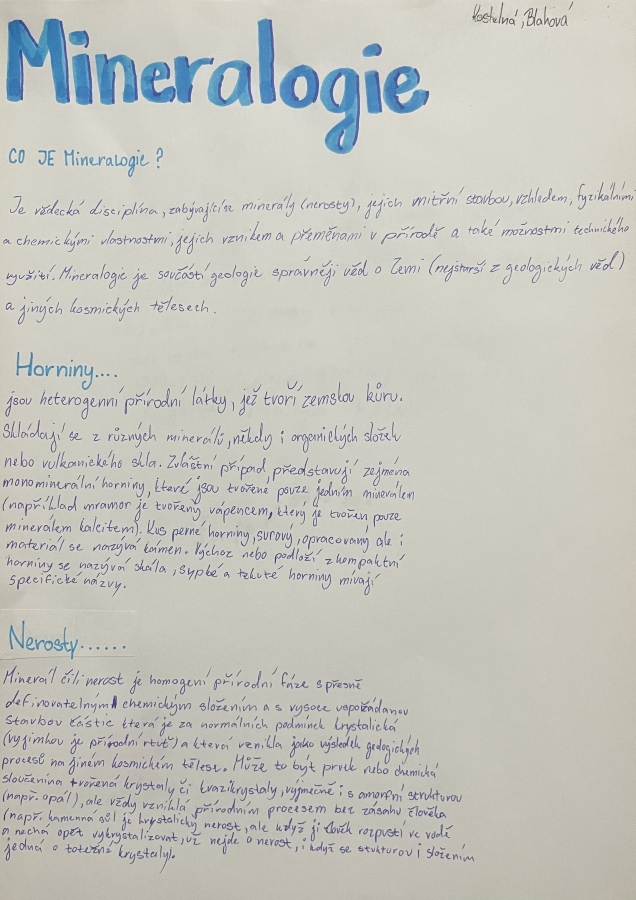 Kostelná, Blahová
Mineralogie
CO JE Mineralogie ?
Je vědecká disciplína, zabývající se minerály (nerosty), jejich vnitřní stavbou, vzhledem, fyzikálními
a chemickými vlastnostmi, jejich vznikem a přeměnami v přírodě a také možnostmi technického
využití. Mineralogie je součástí geologie správněji věd o Zemi (nejstarší z geologických věd)
a jiných kosmických tělesech.
Horniny....
jsou heterogenní přírodní látky, jež tvoří zemskou kůru.
Skládají se z různých minerálů, někdy i organických složek
nebo vulkanického skla. Zvláštní případ, představují zejména
monominerální horniny, které jsou tvořene pouze jedním minerálem
(například mramor je tvořený vápencem, který je tvořen pouze
minerálem kalcitem). Kus perné horniny, surový, opracovaný ale i
materiál se nazývá kámen. Výchoz nebo podloží z kompaktní
horniny se nazývá skála, sypké a tekuté horniny mívají
specifické názvy.
Nerosty......
Minerál čili nerost je homogení přírodní fáze s přesně
definovatelným chemickým složením a s vysoce uspořádanou
stavbou částic která je za normálních podmínek krystalická
(vyjímkou je přírodní rtuť) a která vznikla jako výsledek geologických
procesů na jiném kosmickém tělese. Může to být prvek nebo chemická
sloučenina tvořená krystaly či kvazikrystaly, vyjímečně i s amorfní strukturou
(např. opál), ale vždy vzniklá přírodním procesem bez zásahu člověka
(např. kamenná sůl je krystalický nerost, ale když ji člověk rozpustí ve vodě
a nechá opět vykrystalizovat, už nejde o nerost, i když se strukturou i složením
jedná o totožné krystaly).